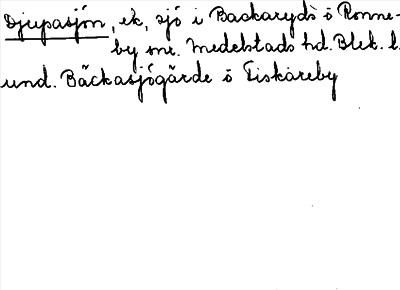 Djupasjön, ek, sjö i Backaryds ö Ronne-
by snr. Medelstads hd. Blek. l.
und. Bäckasjögärde ö Fiskareby